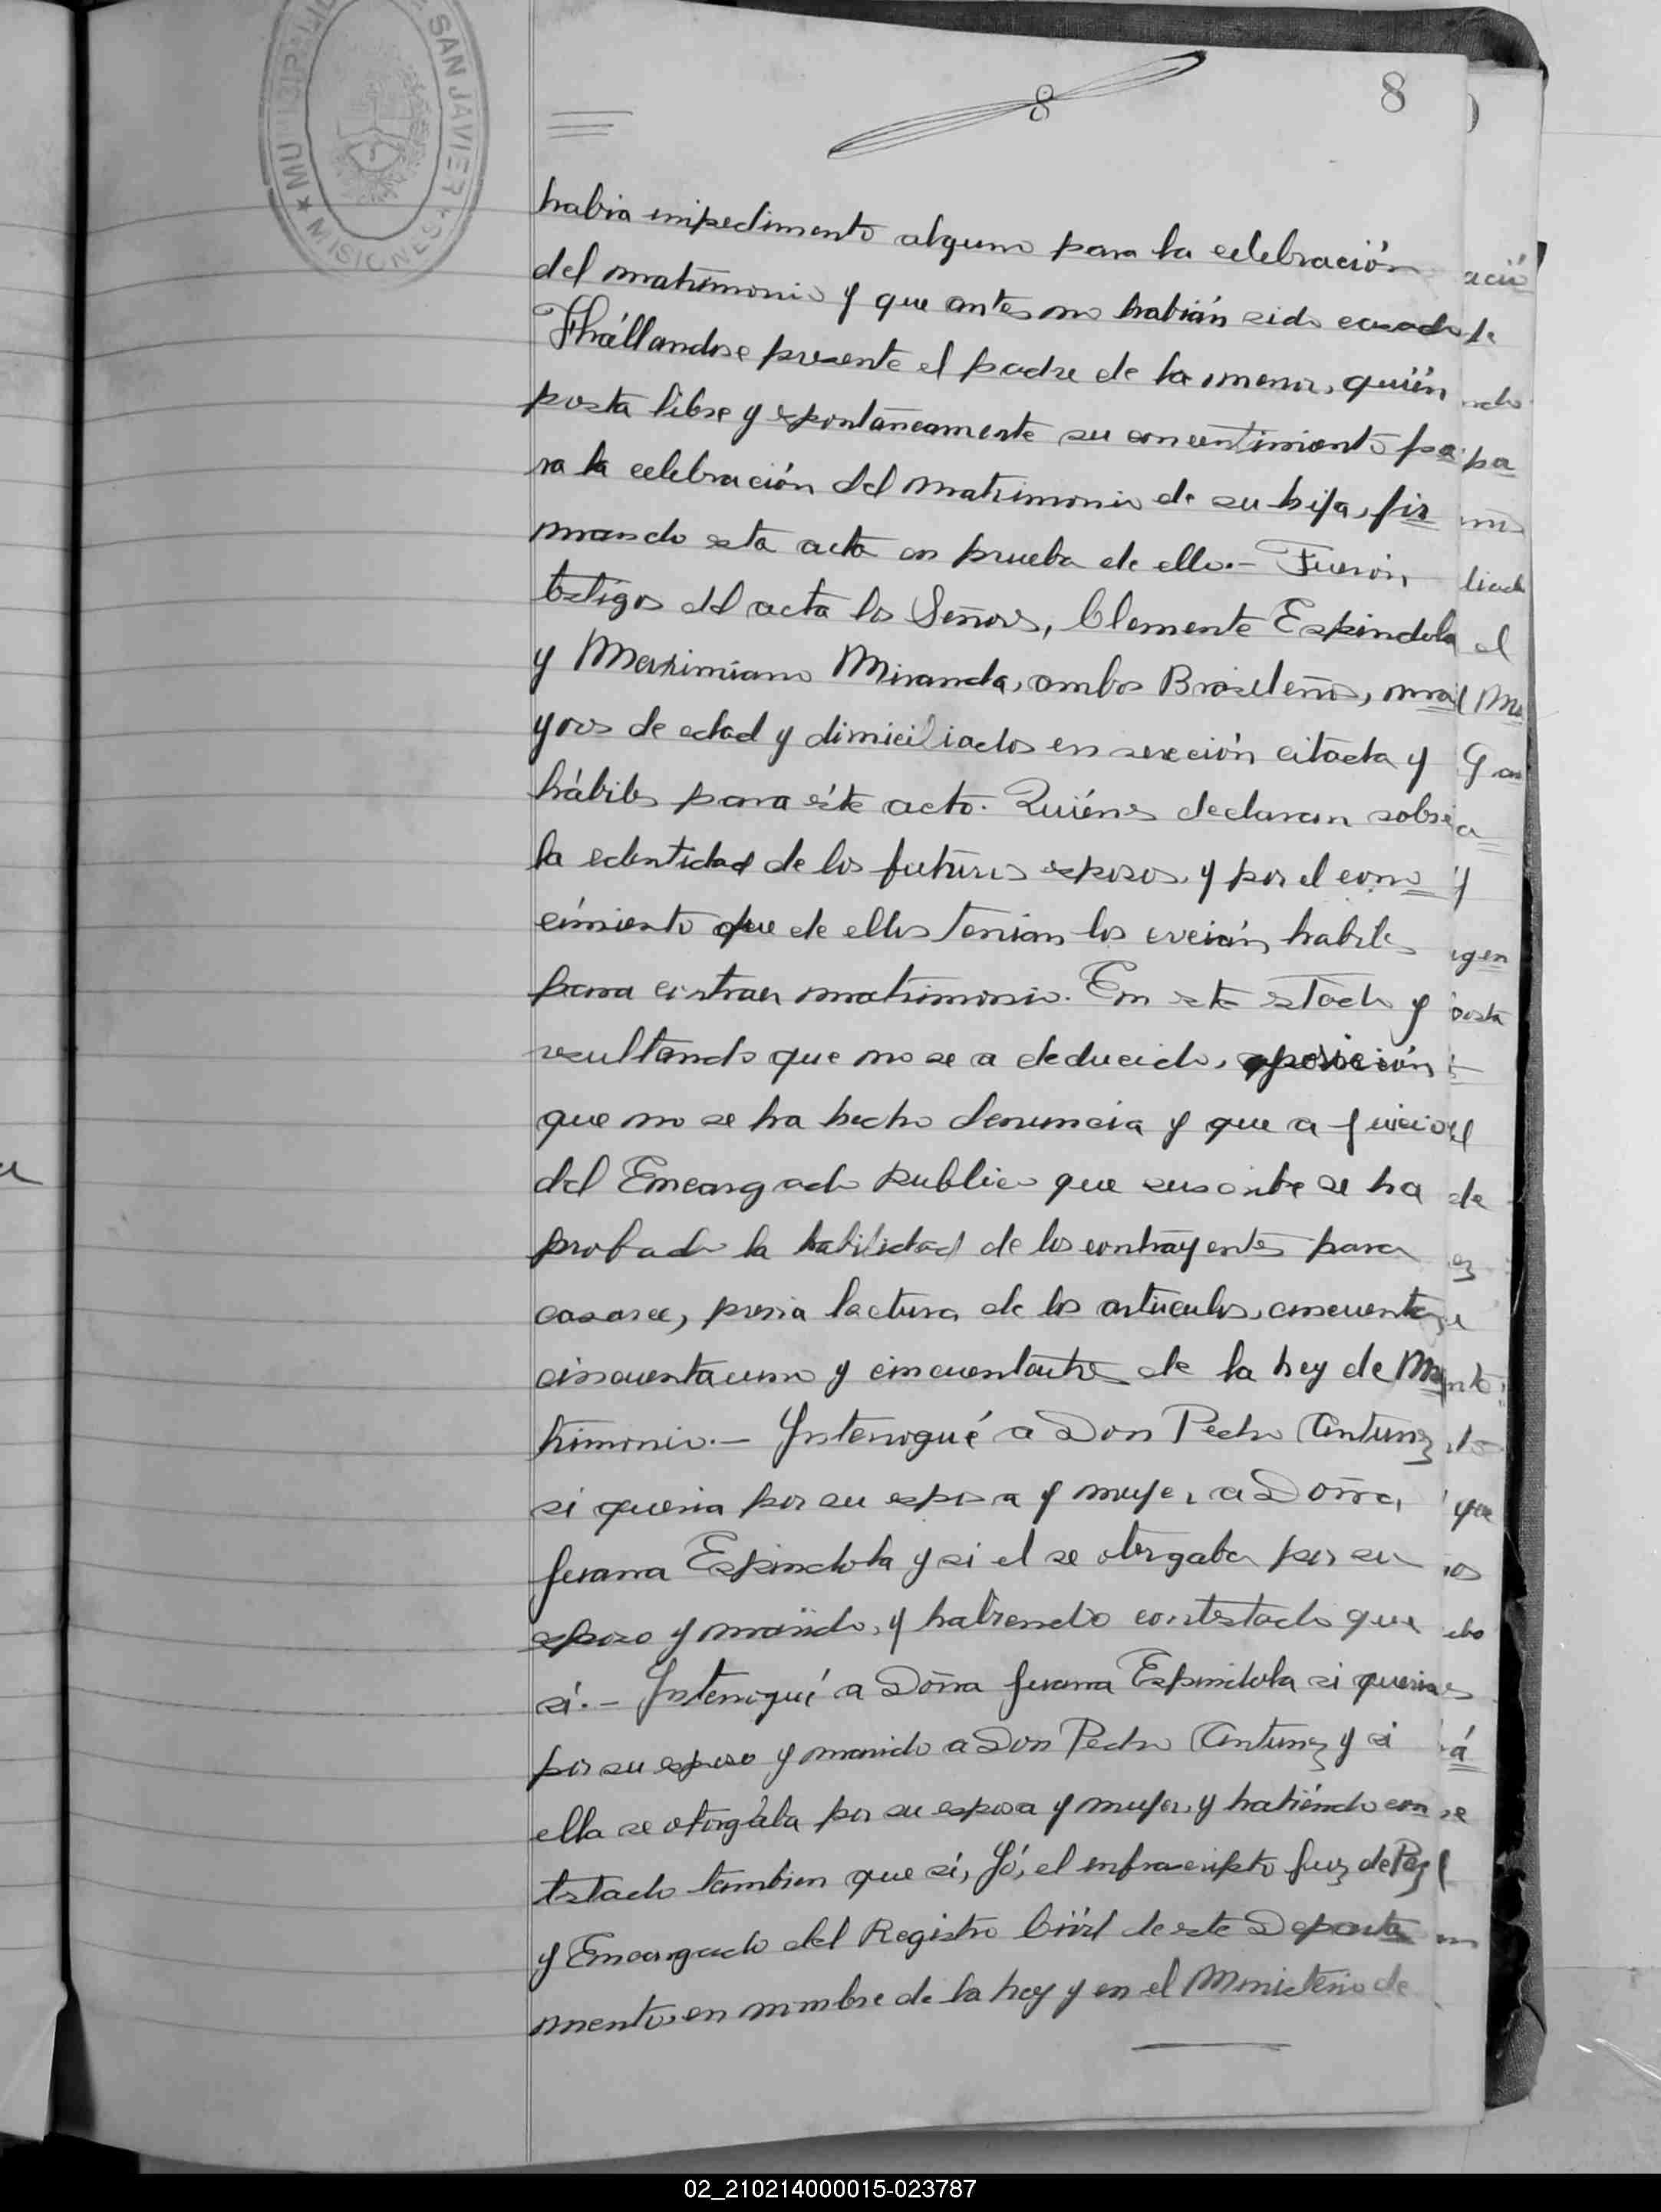 MUNICIPALID SAN JAVIER
★ MISIONES
8
8
habia impedimento alguno para la celebración
del matrimonio y que antes no habián sido casado
Hhállandose presente el padre de la menor, quién
posta libre y espontáneamente su concentimiento pa
ra la celebración del matrimonio de su hija, fir
mando esta acta en prueba de ello.- Fuerón,
testigos del acta los Señores, Clemente Espindola
y Maximiano Miranda, ambos Brasileños, ma
yores de edad y dimiciliados en sección citada y
hábiles para éste acto. Quiénes declaran sobre
la edentidad de los futuros esposos, y por el cono
cimiento que de ellos tenian los creián habiles
para contraer matrimonio. En este estado y
resultando que no se a deducido, oposición
que no se ha hecho denuncia y que a juicio
del Encargado publico que suscribe se ha
probado la habilidad de los contrayentes para
casarce, previa lectura de los artículos, cincuenta
cincuentauno y cincuentaitres de la ley de Ma
trimonio.- Interrogué a Don Pedro Antunez
si queria por su esposa y mujer a Doña,
Juana Espindola y si el se otorgaba por su
esposo y marido, y habiendo contestado que
si.- Interrogué a Doña Juana Espindola si queria
por su esposo y marido a Don Pedro Antunez y si
ella se otorgaba por su esposa y mujer, y habiéndo con
testado tambien que si, Yó, el enfraescripto Juez de Paz
y Encargado del Registro Civil de este Departa
mento, en nombre de la ley y en el Ministerio de
02_210214000015-023787